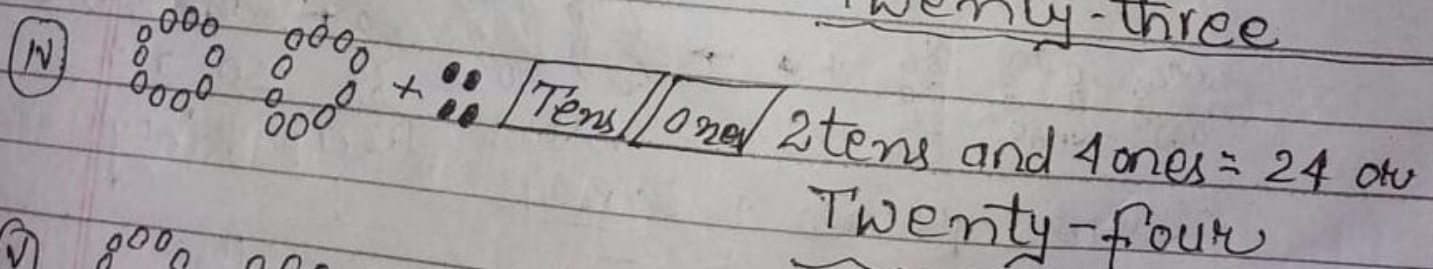 Twenty-three
IV + Tens Ones 2 tens and 4 ones = 24 or
Twenty-four
V